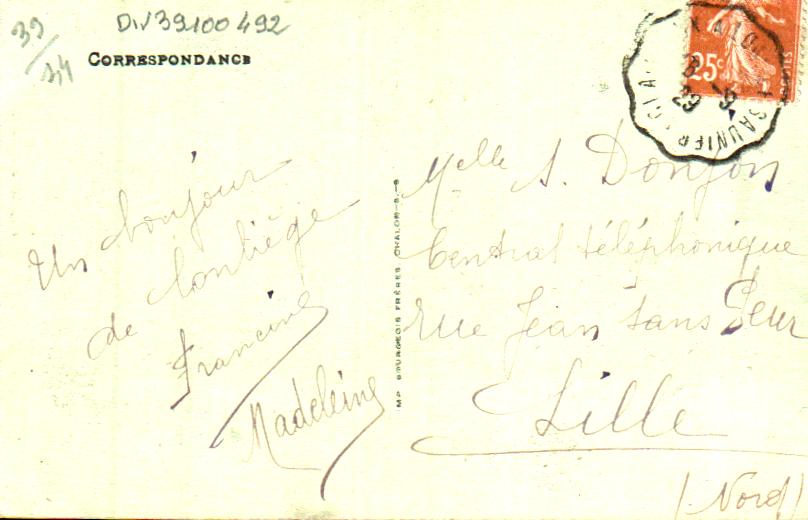 39/34
Div 39100 492
CORRESPONDANCE
Un bonjour
de Conliège
Francine
Madeleine
IMP. BOURGEOIS FRÈRES, CHALON-S.-S
25c
SAUNIER
Melle A. Donjon
Central téléphonique
rue Jean sans Peur
Lille
(Nord)